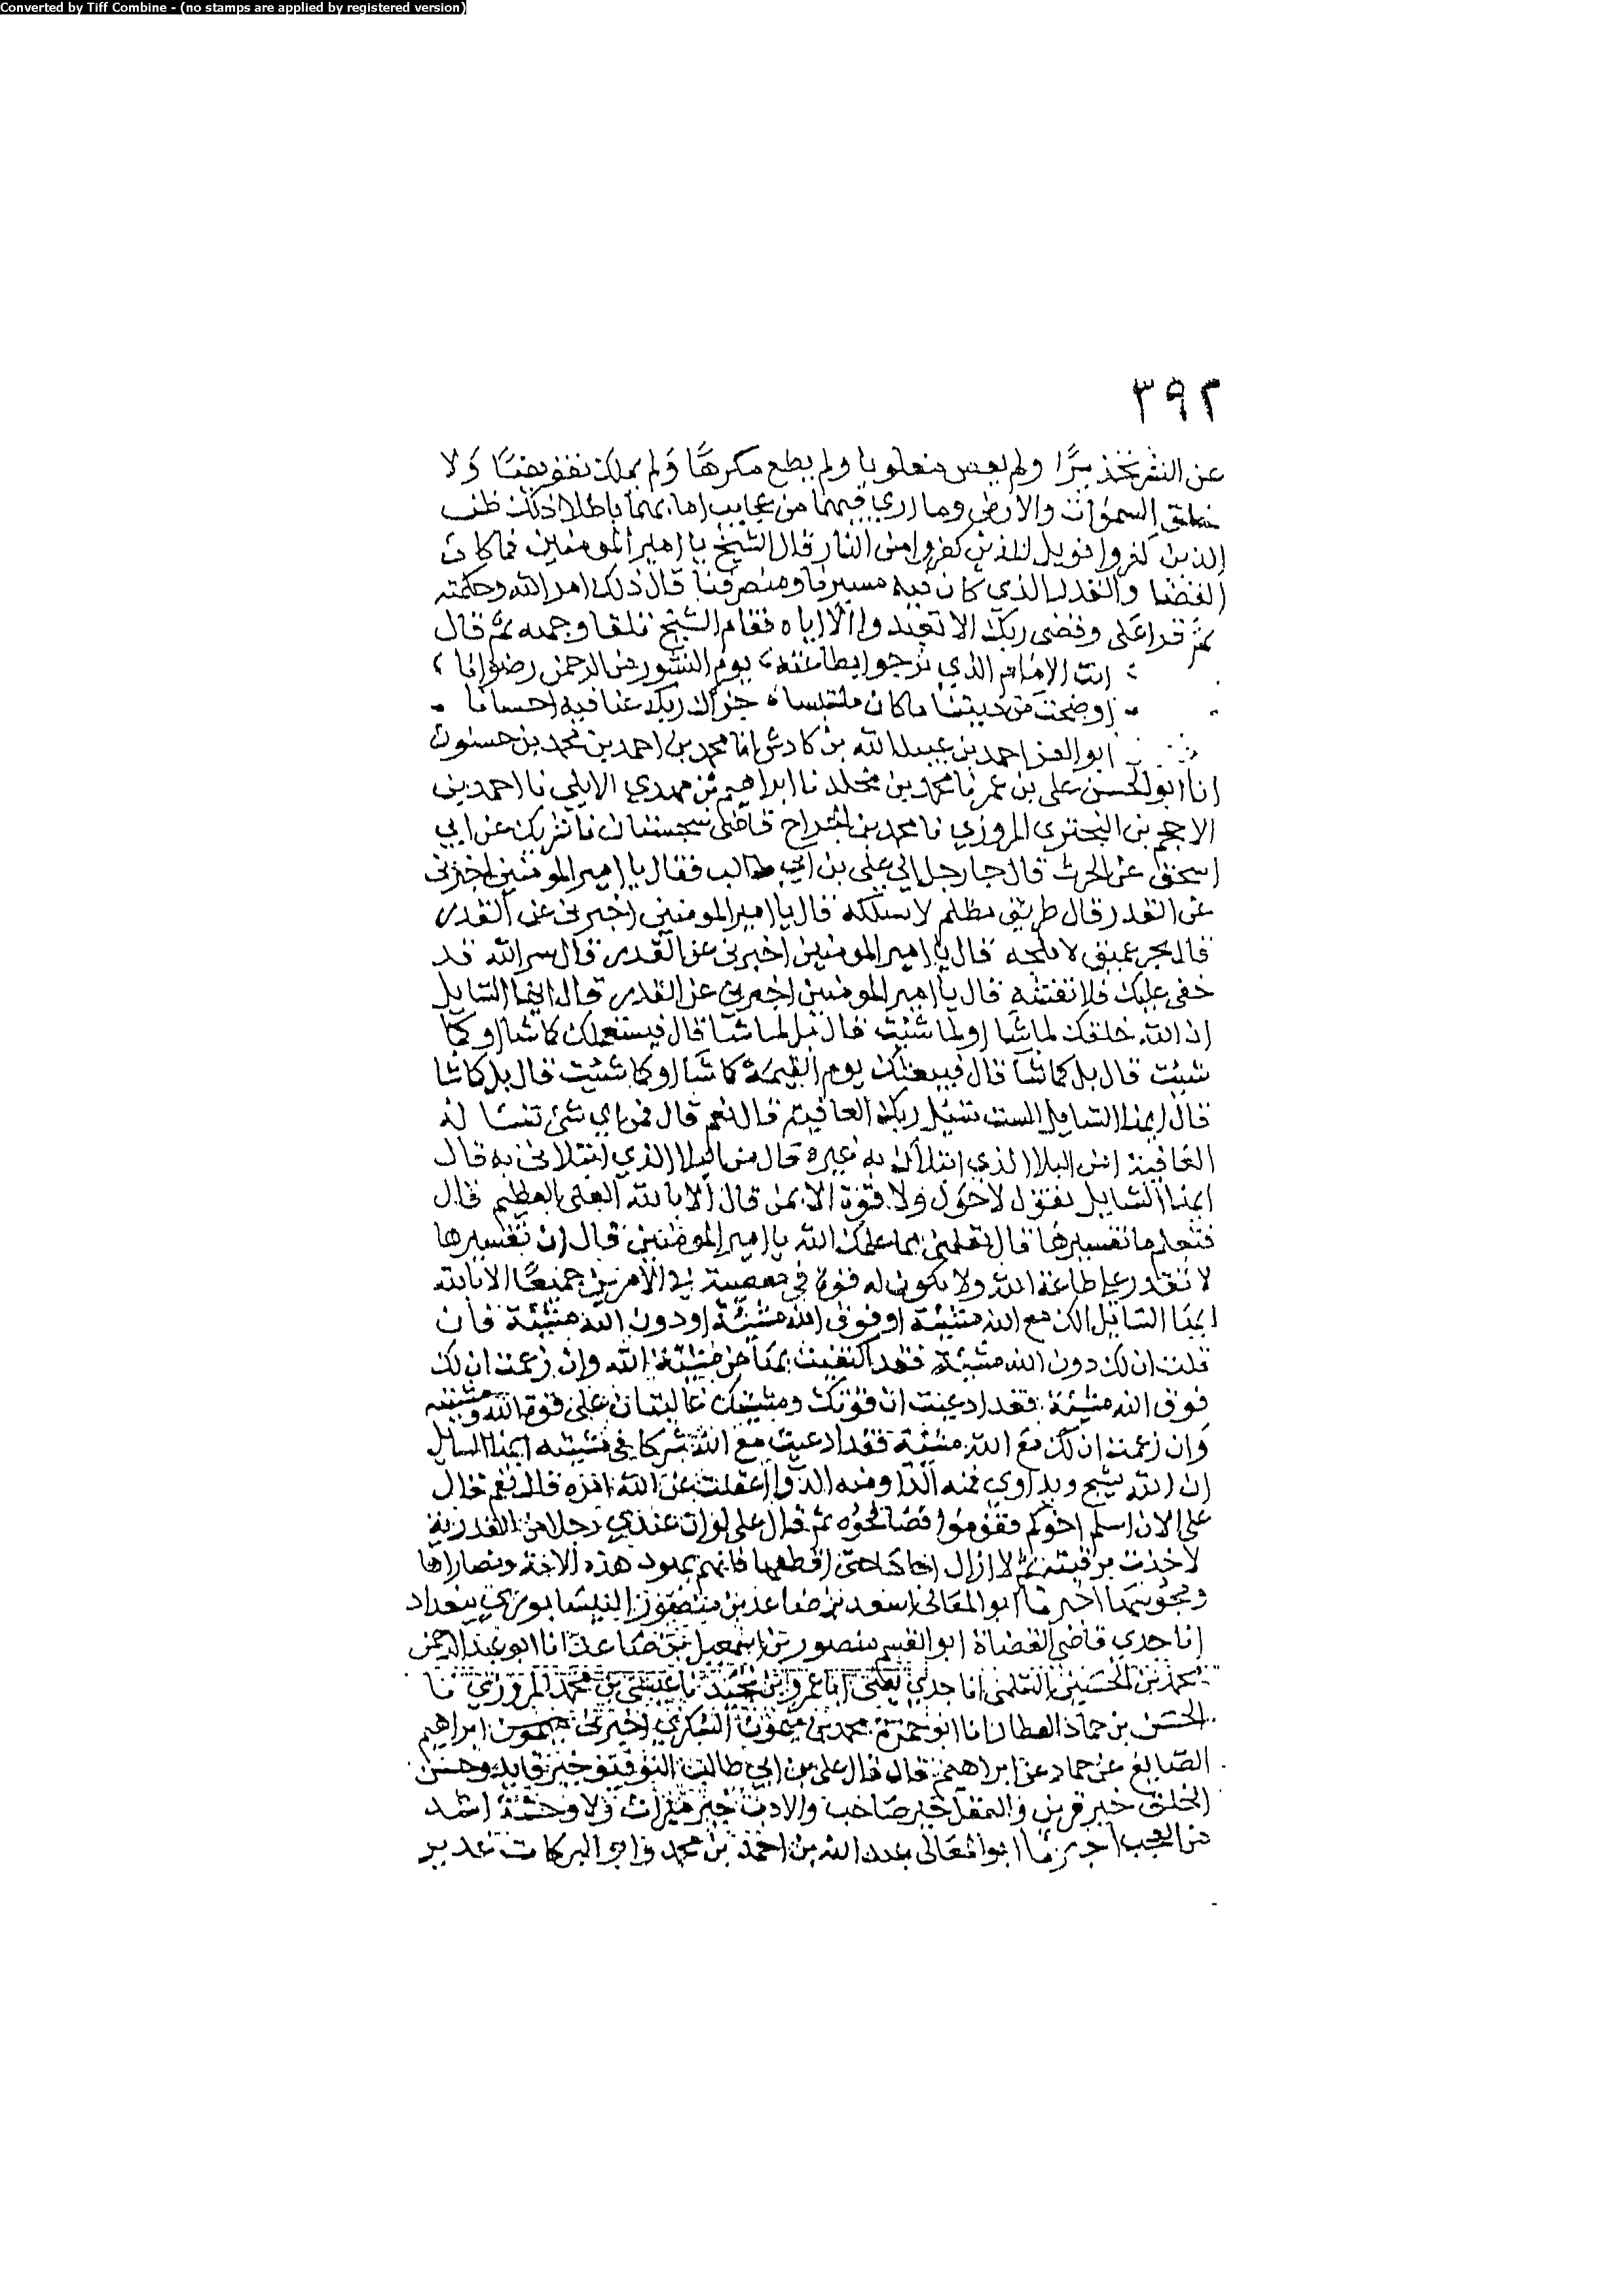 Converted by Tiff Combine - (no stamps are applied by registered version)
٣٩٢
عن الشر تحذيرًا ولم يعص مغلوبا ولم يطع مكرهًا ولم يملك تفويضًا ولا
خلق السموات والارض وما ارى فيهما من عجايب اياتهما باطلا ذلك ظن
الذين كفروا فويل للذين كفروا من النار قال الشيخ يا امير المومنين فما كان
القضا والقدر الذي كان فيه مسيرنا ومنصرفنا قال ذلك امر الله وحكمته
ثم قرا على وقضى ربك الا تعبدوا الا اياه فقام الشيخ تلقا وجهه ثم قال
انت الامام الذي نرجوا بطاعته يوم النشور من الرحمن رضوانا
اوضحت من ديننا ما كان ملتبسا جزاك ربك عنا فيه احسانا
ابو العز احمد بن عبيد الله بن كادش انا محمد بن احمد بن محمد بن حسنون
انا ابو الحسن على بن عمر نا محمد بن مخلد نا ابراهيم بن مهدي الابلي نا احمد بن
الاحجم بن البختري المروزي نا محمد بن الجراح قاضى سجستان نا شريك عن ابي
اسحق عن الحرث قال جا رجل الى على بن ابي طالب فقال يا امير المومنين اخبرنى
عن القدر قال طريق مظلم لا تسلكه قال يا امير المومنين اخبرنى عن القدر
قال بحر عميق لا تلجه قال يا امير المومنين اخبرنى عن القدر قال سر الله قد
خفى عليك فلا تفتشه قال يا امير المومنين اخبرنى عن القدر قال ايها السايل
ان الله خلقك لما شا او لما شئت قال بل لما شا قال فيستعملك كما شا او كما
شئت قال بل كما شا قال فيبعثك يوم القيمة كما شا او كما شئت قال بل كما شا
قال ايها السايل الست تسئل ربك العافية قال نعم قال فمن اي شى تسئاله
العافية امن البلا الذي ابتلاك به غيره قال من البلا الذي ابتلانى به قال
ايها السايل تقول لا حول ولا قوة الا بمن قال الا بالله العلى العظيم قال
فتعلم ما تفسيرها قال تعلمنى مما علمك الله يا امير المومنين قال ان تفسيرها
لا تقدر على طاعة الله ولا يكون له قوة في معصية في الامرين جميعًا الا بالله
ايها السائل الك مع الله مشيئة او فوق الله مشيئة او دون الله مشيئة فان
قلت ان لك دون الله مشيئة فقد اكتفيت بها عن مشيئة الله وان زعمت ان لك
فوق الله مشيئة فقد ادعيت ان قوتك ومشيتك غالبتان على قوة الله ومشيته
وان زعمت ان لك مع الله مشيئة فقد ادعيت مع الله شركا في مشيته ايها السايل
ان الله يشج ويداوي فمنه الدا ومنه الدوا اعقلت عن الله امره قال نعم قال
على الان اسلم اخوكم فقوموا فصافحوه ثم قال على لو ان عندي رجلا من القدرية
لاخذت برقبته ثم لا ازال اجاها حتى اقطعها فانهم يهود هذه الامة ونصاراها
ومجوسها اخبرنا ابو المعالى اسعد بن صاعد بن منصور النيسابوري ببغداد
انا جدي قاضي القضاة ابو القسم منصور بن اسمعيل بن صاعد انا ابو عبد الرحمن
محمد بن الحسين السلمى انا جدي يعنى ابا عمرو بن نجيد نا عيسى بن محمد المروزي نا
الحسن بن حماد العطار انا ابو حمزة محمد بن ميمون السكري اخبرنى ابراهيم
الصايغ عن حماد عن ابراهيم قال قال على بن ابي طالب التوفيق خير قايد وحسن
الخلق خير قرين والعقل خير صاحب والادب خير ميراث ولا وحشة اشد
من العجب اخبرنا ابو المعالى عبد الله بن احمد بن محمد وابو البركات